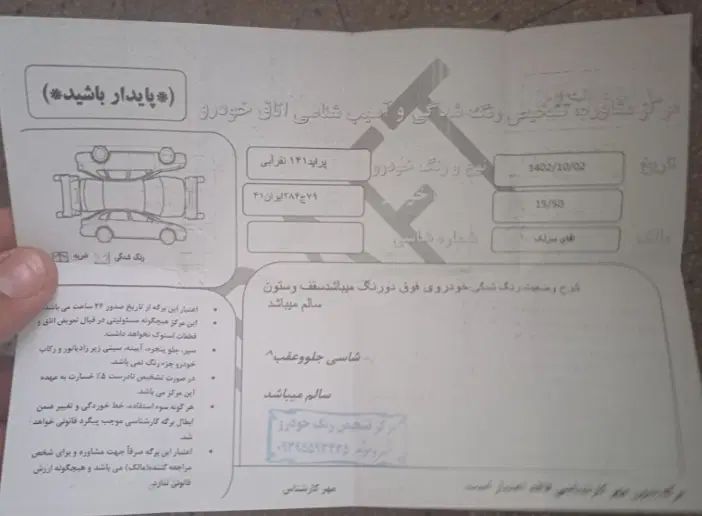 (*پایدار باشید*)
مرکز مشاوره، تشخیص رنگ شدگی و آسیب شناسی اتاق خودرو
تاریخ
1402/10/02
نوع و رنگ خودرو
پراید۱۴۱ نقرآبی
15/50
۷۹ج۲۸۴ایران۴۱
مالک
آقای
شماره شاسی
رنگ شدگی
ضربه
شرح وضعیت رنگ شدگی خودروی فوق دورنگ میباشدسقف وستون
سالم میباشد
شاسی جلووعقب^
سالم میباشد
مرکز تشخیص رنگ خودرو
مهر کارشناس
اعتبار این برگه از تاریخ صدور ۲۴ ساعت می باشد.
این مرکز هیچگونه مسئولیتی در قبال تعویض اتاق و
قطعات استوک نخواهد داشت.
سپر، جلو پنجره، آیینه، سینی زیر رادیاتور و رکاب
خودرو جزء رنگ نمی باشد.
در صورت تشخیص نادرست ۵٪ خسارت به عهده
این مرکز می باشد.
هر گونه سوء استفاده، خط خوردگی و تغییر ضمن
ابطال برگه کارشناسی موجب پیگرد قانونی خواهد
شد.
اعتبار این برگه صرفاً جهت مشاوره و برای شخص
مراجعه کننده(مالک) می باشد و هیچگونه ارزش
قانونی ندارد.